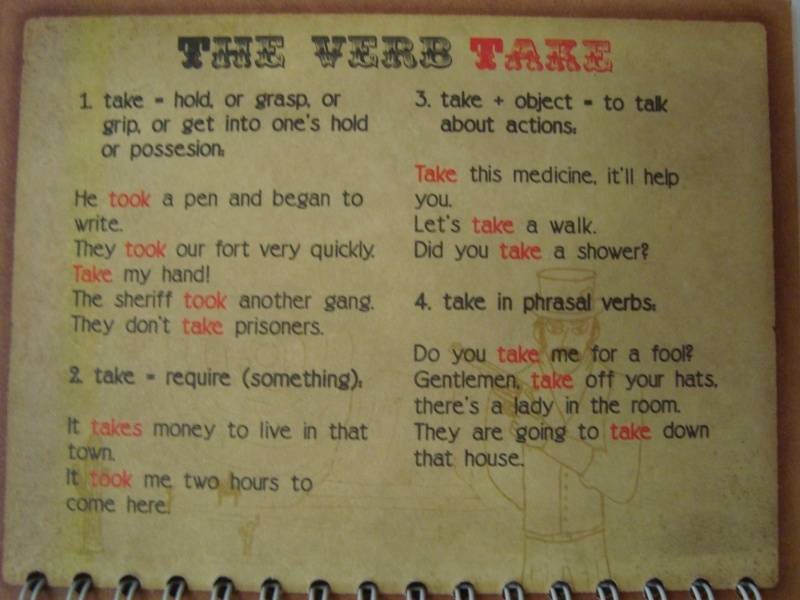 THE VERB TAKE
1. take = hold, or grasp, or
grip, or get into one's hold
or possesion:
He took a pen and began to
write.
They took our fort very quickly.
Take my hand!
The sheriff took another gang.
They don't take prisoners.
2. take = require (something):
It takes money to live in that
town.
It took me two hours to
come here.
3. take + object = to talk
about actions:
Take this medicine, it'll help
you.
Let's take a walk.
Did you take a shower?
4. take in phrasal verbs:
Do you take me for a fool?
Gentlemen, take off your hats,
there's a lady in the room.
They are going to take down
that house.